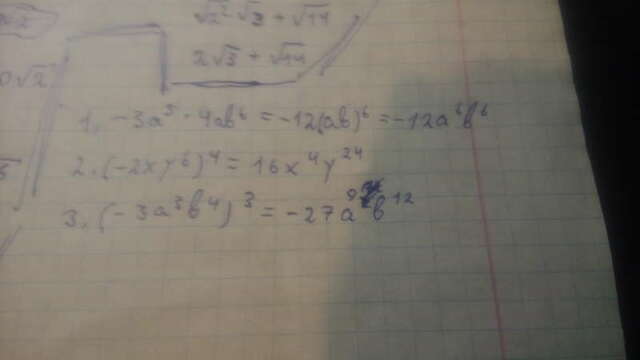 √2² √3 + √14
2√3 + √14
0√2
1. -3a⁵ · 4ab⁶ = -12(ab)⁶ = -12a⁶b⁶
2. (-2xy⁶)⁴ = 16x⁴y²⁴
3. (-3a³b⁴)³ = -27a⁹b¹²